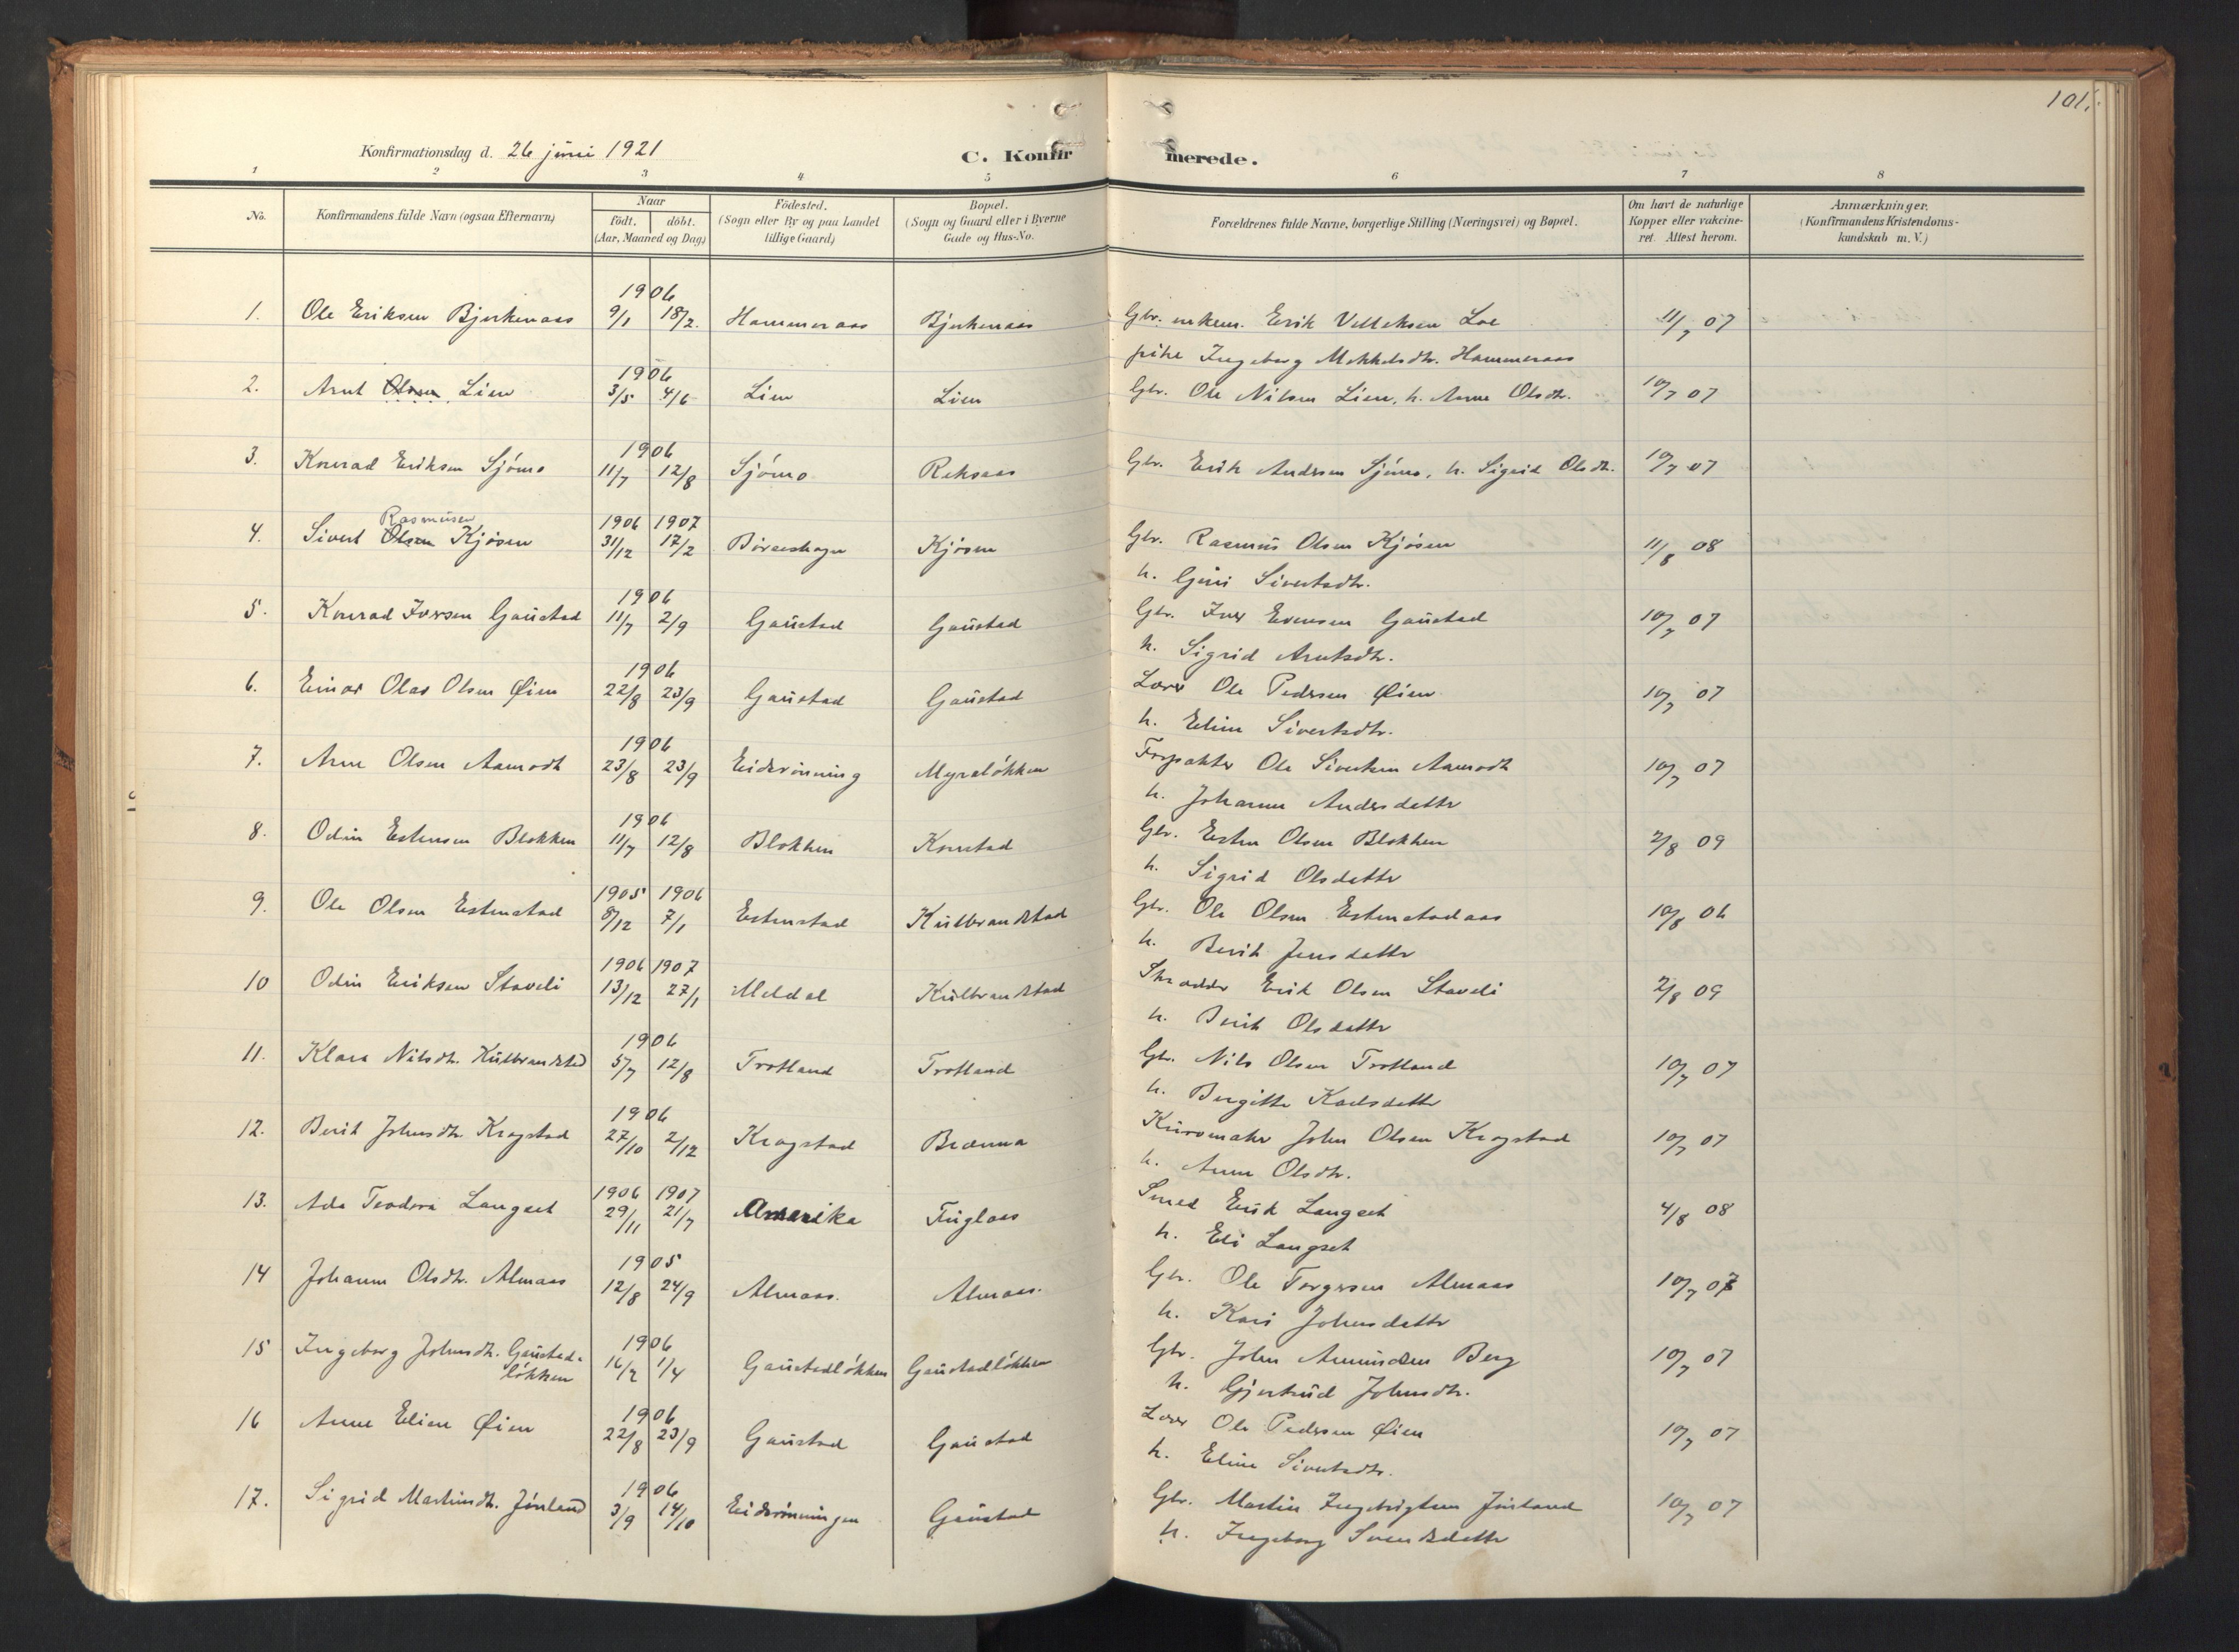 101.
Konfirmationsdag d. 26 juni 1921
C. Konfirmerede.
1 2 3 4 5 6 7 8
No. Konfirmandens fulde Navn (ogsaa Efternavn) Naar født. døbt. (Aar, Maaned og Dag) Fødested. (Sogn eller By og paa Landet tillige Gaard) Bopæl. (Sogn og Gaard eller i Byerne Gade og Hus-No. Forældrenes fulde Navne, borgerlige Stilling (Næringsvei) og Bopæl. Om havt de naturlige Kopper eller vakcineret. Attest herom. Anmærkninger. (Konfirmandens Kristendomskundskab m. V.)
1906
1. Ole Eriksen Bjerkenaas 9/1 18/2. Hammeraas Bjerkenaas Gbr. enkem. Erik Loe 11/7 07
pike Ingeborg Mikkelsdtr. Hammeraas
1906
2. Arnt Olsen Lien 3/5 4/6 Lien Lien Gbr. Ole Nilsen Lien, h. Anne Olsdtr. 10/7 07
1906
3. Konrad Eriksen Sjömo 11/7 12/8 Sjömo Reksaas Gbr. Erik Andersen Sjömo, h. Sigrid Olsdtr. 10/7 07
Rasmusen 1906 1907
4. Sivert Olsen Kjösen 31/12 17/2 Börseskogn Kjösen Gbr. Rasmus Olsen Kjösen 11/8 08
h. Guri Sivertsdtr.
1906
5. Konrad Iversen Gaustad 11/7 2/9 Gaustad Gaustad Gbr. Iver Evensen Gaustad 10/7 07
h. Sigrid Arntsdtr.
1906
6. Einar Olav Olsen Øien 22/8 23/9 Gaustad Gaustad Lærer Ole Pedersen Øien 10/7 07
h. Eline Sivertsdtr.
1906
7. Arne Olsen Aamodt 23/8 23/9 Eidsrönning Myralökken Forpakter Ole Sivertsen Aamodt 10/7 07
h. Johanne Andersdatter
1906
8. Odin Estensen Blokken 11/7 12/8 Blokken Korstad Gbr. Esten Olsen Blokken 2/8 09
h. Sigrid Olsdatter
1905 1906
9. Ole Olsen Estenstad 8/12 7/1 Estenstad Kulbrandstad Gbr. Ole Olsen Estenstadaas 10/8 06
h. Berit Jensdatter
1906 1907
10 Odin Eriksen Staveli 13/12 27/1 Meldal Kulbrandstad Skrædder Erik Olsen Staveli 2/8 09
h. Berit Olsdatter
1906
11. Klara Nilsdtr. Kulbrandstad 5/7 12/8 Trotland Trotland Gbr. Nils Olsen Trotland 10/7 07
h. Bergitte Karlsdatter
1906
12. Berit Johnsdtr. Kragstad 27/10 2/12 Kragstad Brænna Kurvmaker John Olsen Kragstad 10/7 07
h. Anne Olsdtr.
1906 1907
13. Ada Teodora Langset 29/11 21/7 Amerika Fuglaas Smed Erik Langset 4/8 08
h. Eli Langset
1905
14 Johanne Olsdtr. Almaas 12/8 24/9 Almaas. Almaas. Gbr. Ole Torgersen Almaas 10/7 07
h. Kari Johnsdatter
1906
15 Ingeborg Johnsdtr. Gaustad- 16/2 1/4 Gaustadlökken Gaustadlökken Gbr. John Amundsen Berg 10/7 07
lökken h. Gjertrud Johnsdtr.
1906
16 Anne Eline Øien 22/8 23/9 Gaustad Gaustad Lærer Ole Pedersen Øien 10/7 07
h. Eline Sivertsdtr.
1906
17. Sigrid Martinsdtr. Jörland 3/9 14/10 Eidsrönningen Gaustad Gbr. Martin Ingebrigtsen Jörland 10/7 07
h. Ingeborg Svendsdatter